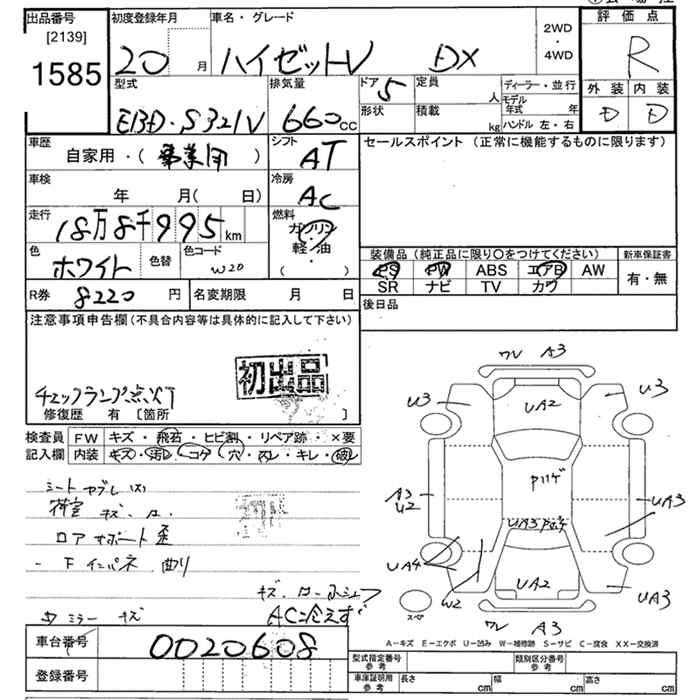 出品番号
[2139]
1585
初度登録年月
20 月
車名・グレード
ハイゼットV DX
2WD
・
4WD
評価点
R
型式
EBD・S321V
排気量
660 cc
ドア
5
定員
人
ディーラー・並行
モデル年式 年
形状
積載
kg
ハンドル 左・右
外装 内装
D D
車歴
自家用・( 事業用 )
シフト
AT
セールスポイント (正常に機能するものに限ります)
車検
年 月( 日)
冷房
AC
走行
18万8千995 km
燃料
ガソリン
軽・油
( )
色
ホワイト
色替
色コード
W20
装備品 (純正品に限り○をつけてください)
新車保証書
PS PW ABS エアB AW
SR ナビ TV カワ
有・無
R券 8220 円
名変期限 月 日
後日品
注意事項申告欄 (不具合内容等は具体的に記入して下さい)
初出品
チェックランプ点灯
修復歴 有 [箇所 ]
検査員
記入欄
FW キズ・飛石・ヒビ割・リペア跡・×要
内装 キズ・汚レ・コゲ・穴・スレ・キレ・破レ
シートヤブレ
荷室 キズ
ロアサポート歪
F インパネ 曲リ
AC冷えず
ミラー キズ
車台番号 0020608
登録番号
ワレ A3
U3
UA2
U3
A3
U2
UA3
UA4
W2
UA2
UA3
スペア
ワレ A3
A−キズ E−エクボ U−凹み W−補修跡 S−サビ C−腐食 XX−交換済
型式指定番号
参考
類別区分番号
参考
車庫証明用
参考
長さ cm
幅 cm
高さ cm